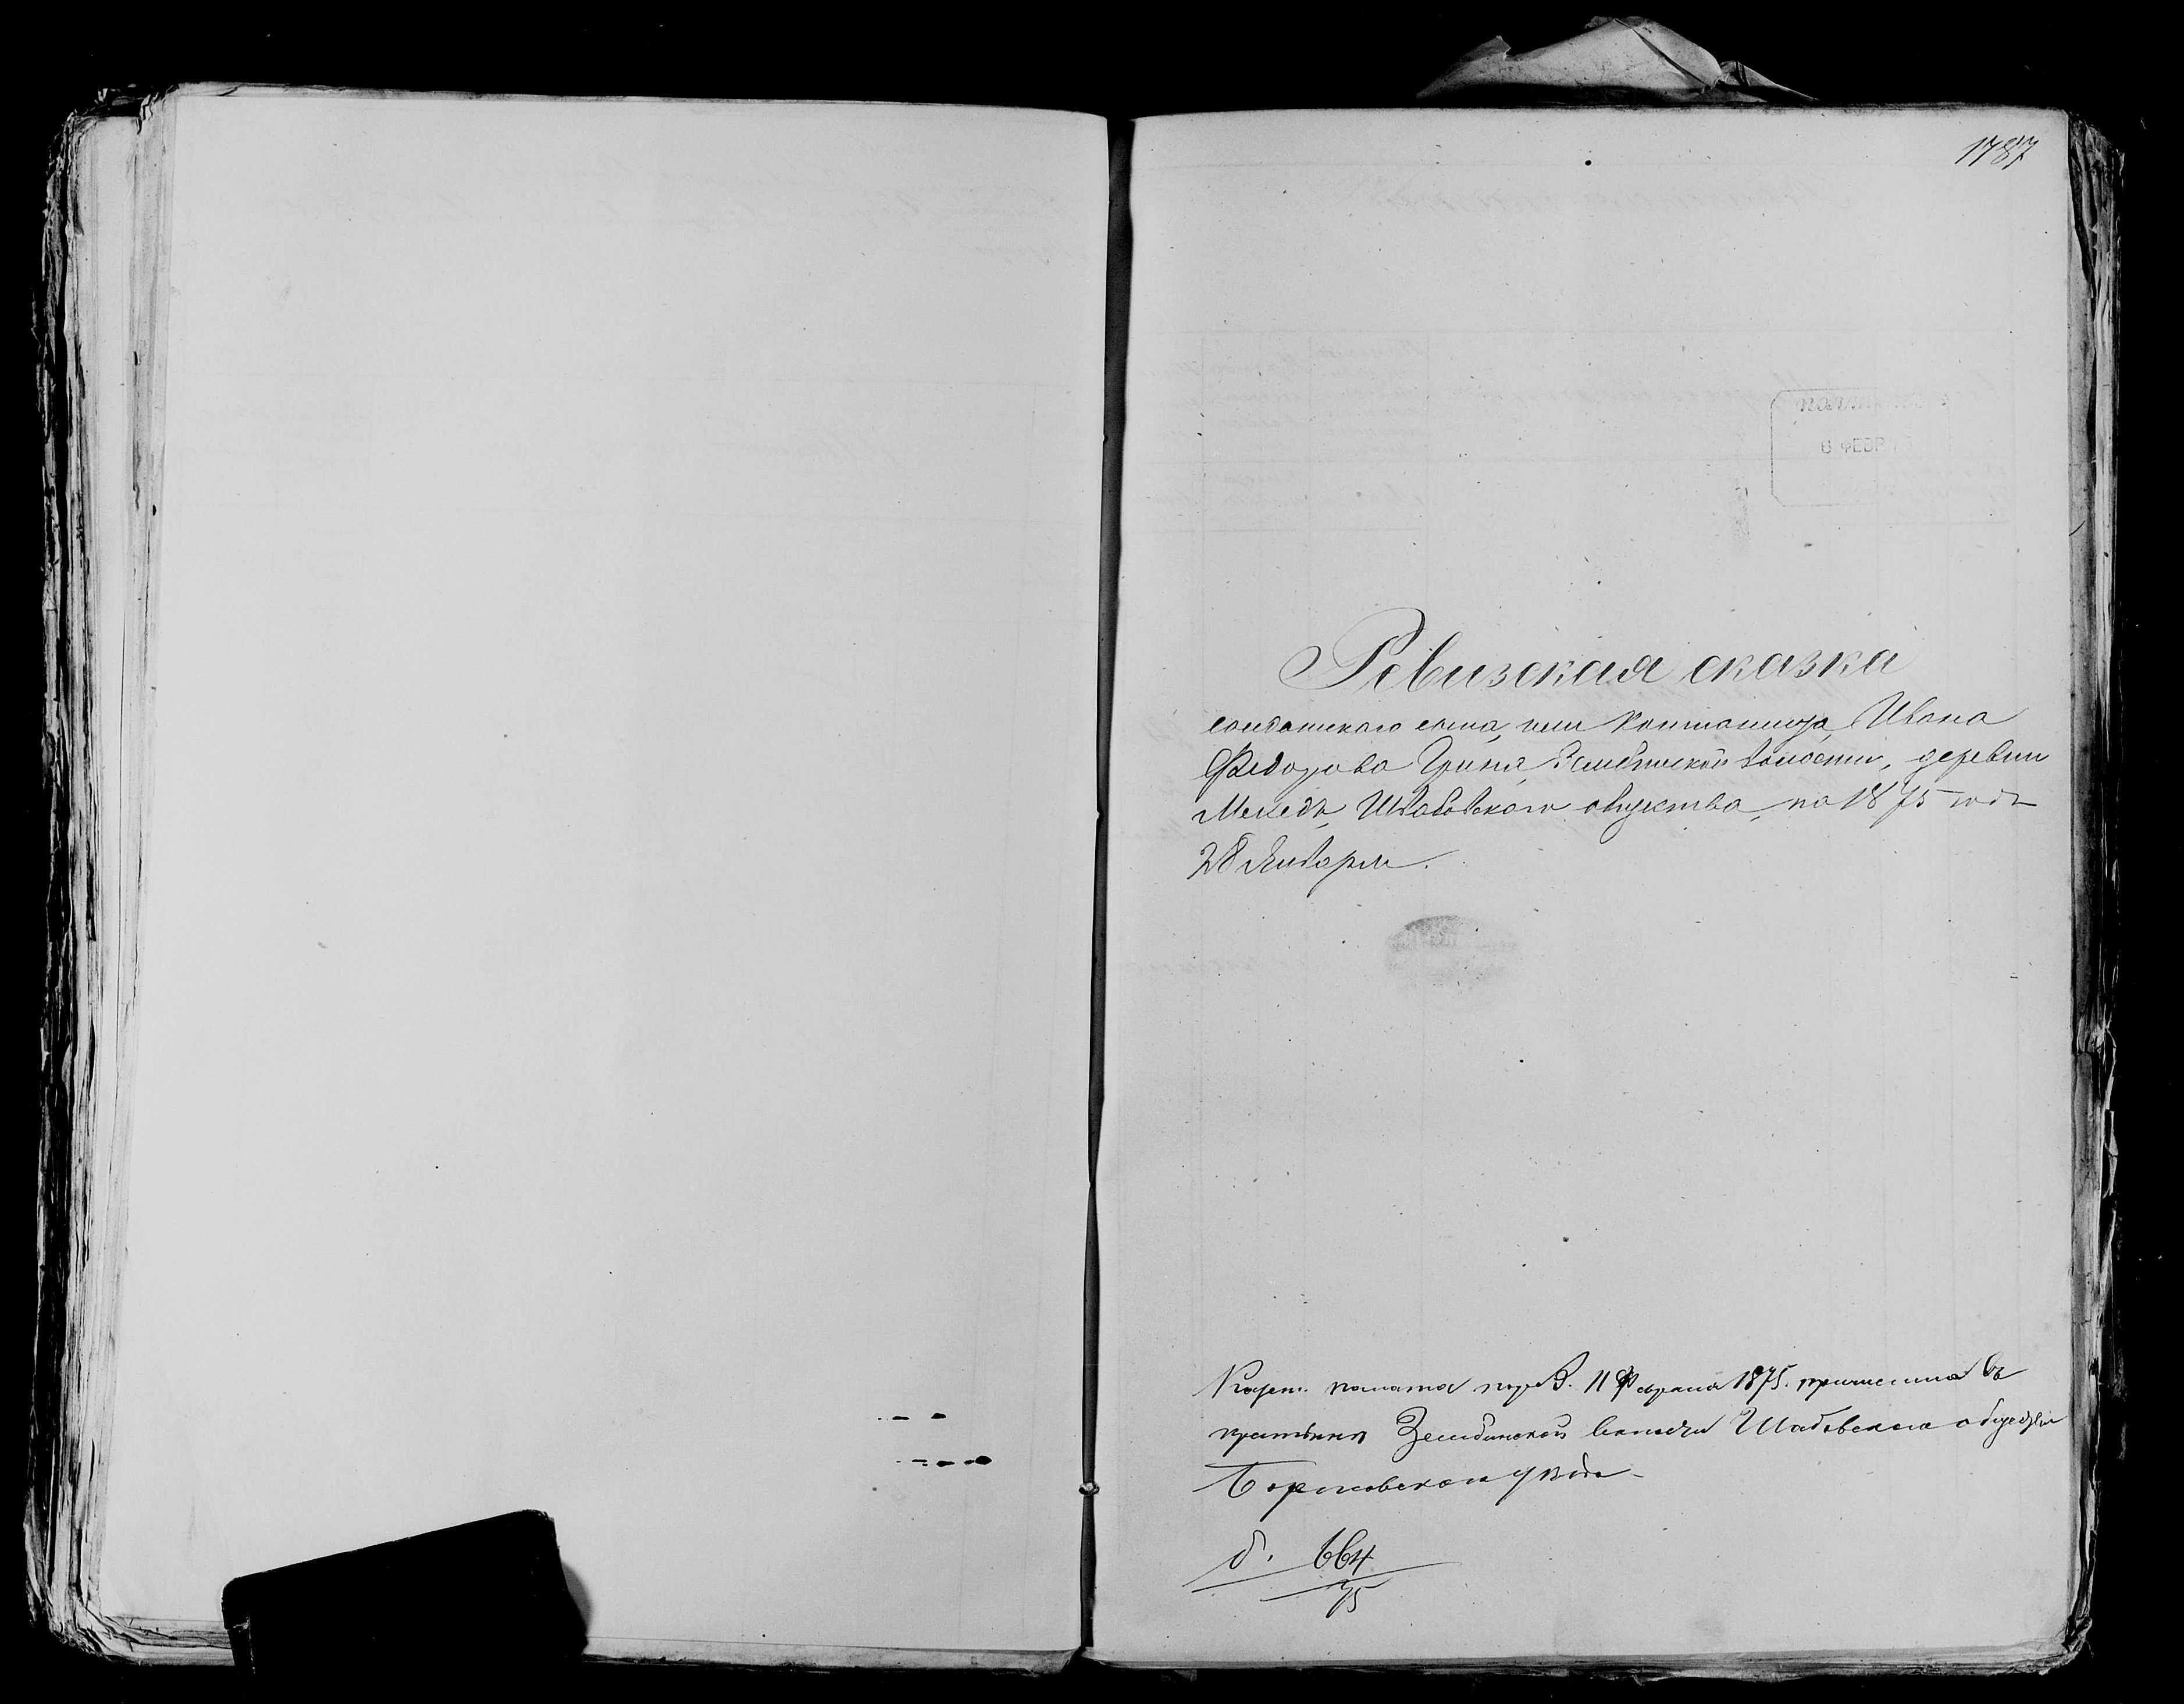 1787
6 ФЕВР
Ревизская сказка
солдатского сына, или Кантониста Ивана
Федорова Грина, Зембинской волости, деревни
Меледь, Шабовского общества, на 1875 годъ
28 Января.
Казен. палата 11 Февраля 1875. причислила въ
крестьяне Зембинской волости Шабовскаго общества
Борисовскаго уѣзда
д. 664
75